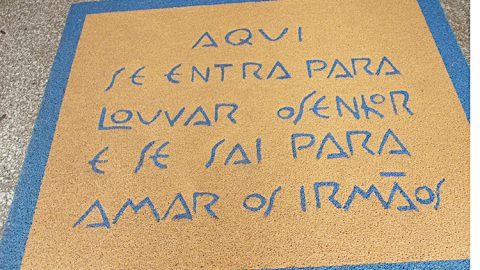 AQUI
SE ENTRA PARA
LOUVAR O SENHOR
E SE SAI PARA
AMAR OS IRMÃOS